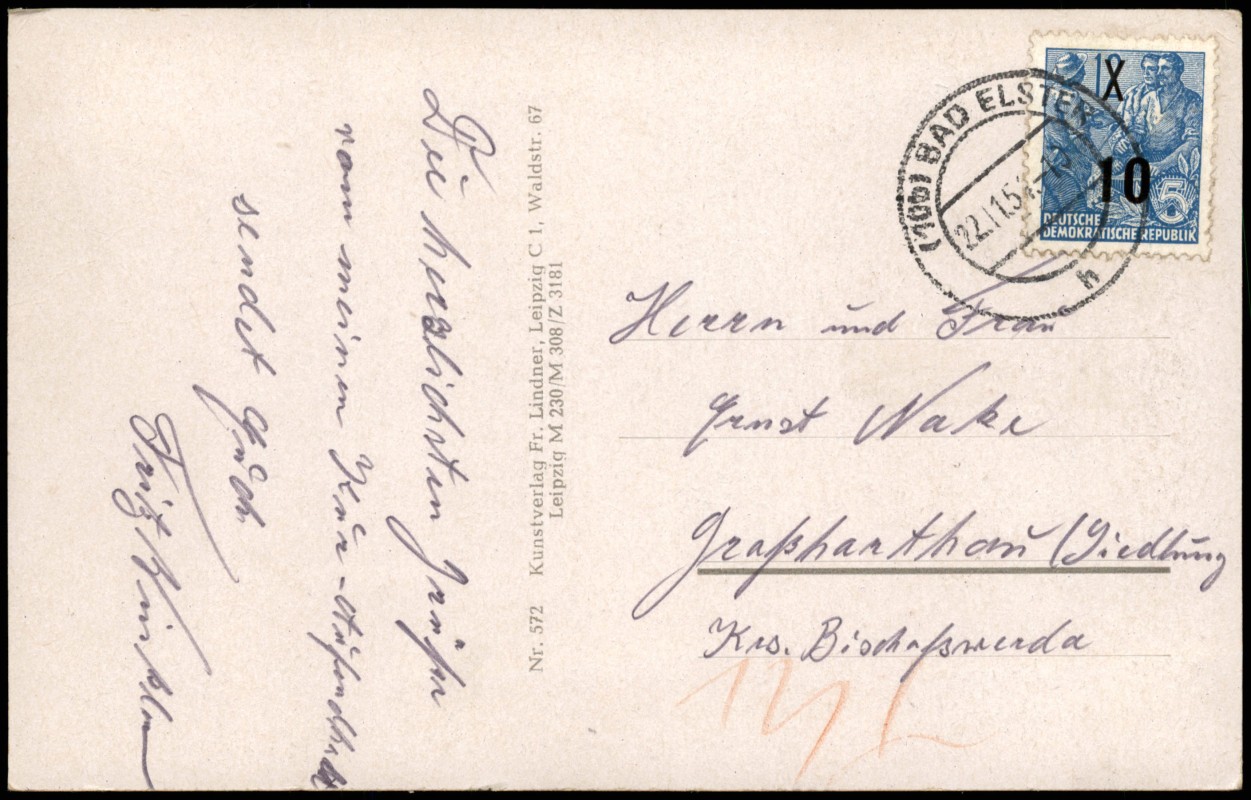 Die herzlichsten Grüße
vom meinen Kur-Aufenthalt
sendet Euch
Fritz
Nr. 572 Kunstverlag Fr. Lindner, Leipzig C 1, Waldstr. 67
Leipzig M 230/M 308/Z 3181
(10b) BAD ELSTER
22.11.5
h
12
X
10
5
DEUTSCHE
DEMOKRATISCHE REPUBLIK
Herrn und Frau
Ernst Nake
Großharthau (Siedlung
Krs. Bischofswerda